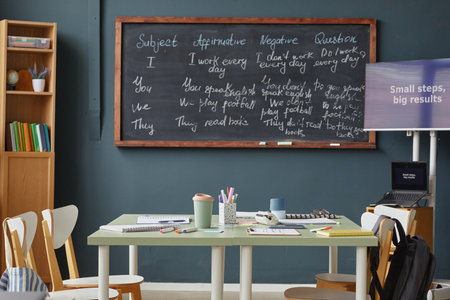 Subject Affirmative Negative Question
I I work every day I don't work every day Do I work every day?
You You speak English You don't speak English Do you speak English
We We play football We don't play football Do we play
They They read books They don't read books Do they read books
Small steps,
big results
Small steps,
big results